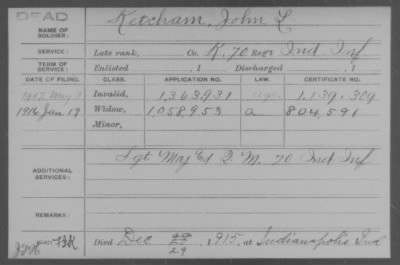 DEAD
NAME OF SOLDIER: Ketcham, John L
SERVICE: Late rank, Co. K. 70 Reg't Ind Inf
TERM OF SERVICE: Enlisted , 1 Discharged , 1
DATE OF FILING. CLASS. APPLICATION NO. LAW. CERTIFICATE NO.
1907 May Invalid, 1,363,931 age. 1,139,309
1916 Jan 19 Widow, 1,058,953 a 804,591
Minor,
ADDITIONAL SERVICES: Sgt Maj & Q. M. 70 Ind Inf
REMARKS:
Died Dec 29, 1915, at Indianapolis Ind
29